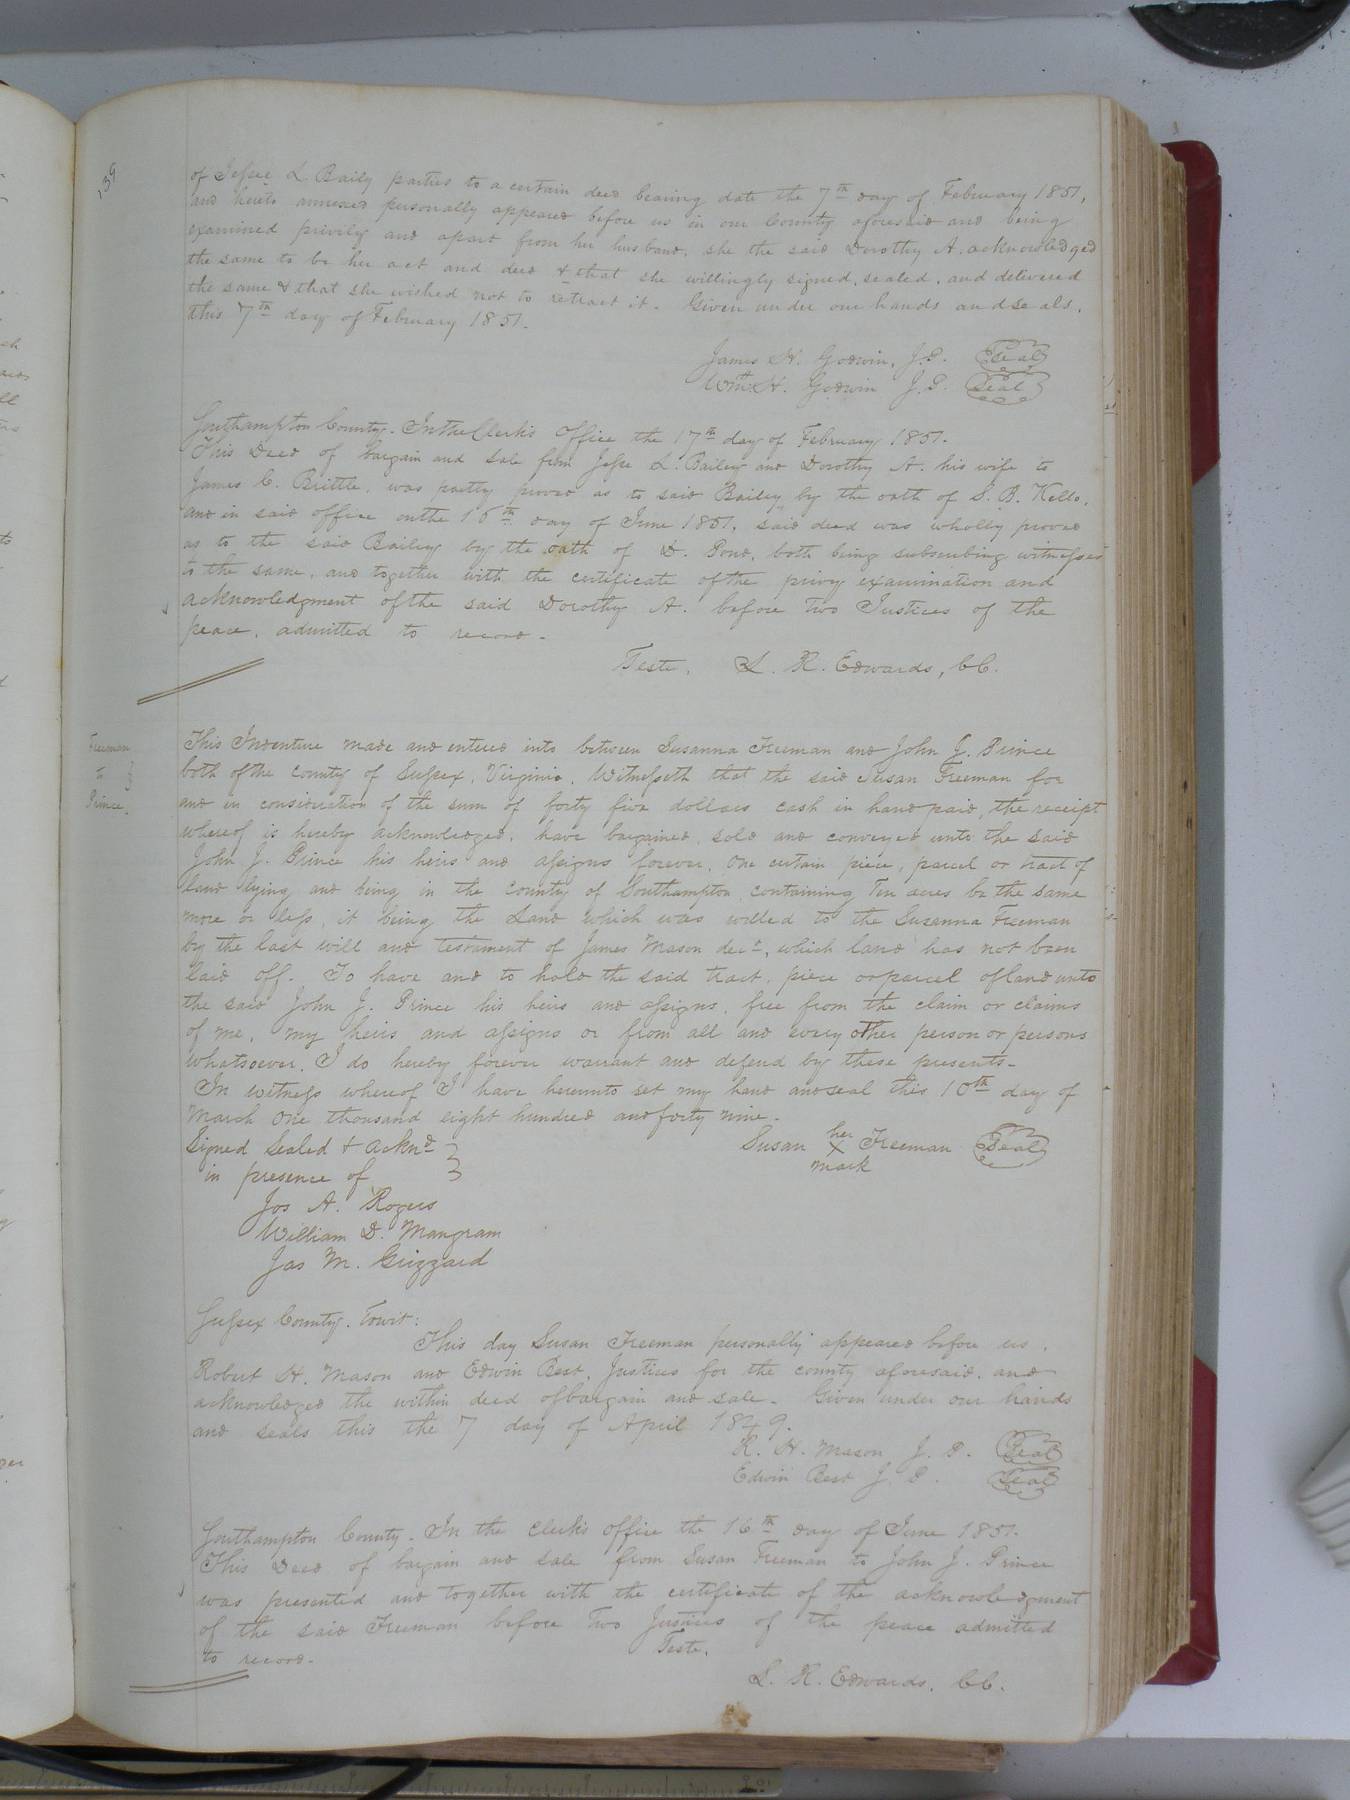 139
of Jesse L Baily parties to a certain deed bearing date the 7th day of February 1851,
and hereto annexed personally appeared before us in our County aforesaid and being
examined privily and apart from her husband, she the said Dorothy A. acknowledged
the same to be her act and deed & that she willingly signed, sealed, and delivered
the same & that she wished not to retract it. Given under our hands and seals,
this 7th day of February 1851.
James H. Godwin, J.P. Seal
Wm. H. Godwin J.P. Seal
Southampton County. In the Clerk's Office the 17th day of February 1851.
This Deed of bargain and sale from Jesse L. Bailey and Dorothy A. his wife to
James C. Brittle, was partly proved as to said Bailey by the oath of S. B. Kello,
and in said office on the 16th day of June 1851, said deed was wholly proved
as to the said Bailey by the oath of D. Pond, both being subscribing witnesses
to the same, and together with the certificate of the privy examination and
acknowledgment of the said Dorothy A. before two Justices of the
peace, admitted to record.
Teste, L. R. Edwards, CC.
Freeman
to
Prince.
This Indenture made and entered into between Susanna Freeman and John J. Prince
both of the County of Sussex, Virginia, Witnesseth that the said Susan Freeman for
and in consideration of the sum of forty five dollars cash in hand paid, the receipt
whereof is hereby acknowledged, have bargained, sold and conveyed unto the said
John J. Prince his heirs and assigns forever, One certain piece, parcel or tract of
Land lying and being in the County of Southampton containing Ten acres be the same
more or less, it being the Land which was willed to the Susanna Freeman
by the last will and testament of James Mason decd, which land has not been
laid off. To have and to hold the said tract, piece or parcel of land unto
the said John J. Prince his heirs and assigns, free from the claim or claims
of me, my heirs and assigns or from all and every other person or persons
whatsoever, I do hereby forever warrant and defend by these presents-
In witness whereof I have hereunto set my hand and seal this 10th day of
March One thousand eight hundred and forty nine.
Signed Sealed & Acknd Susan her Freeman Seal
in presence of X mark
Jos A. Rogers
William D. Mangram
Jas M. Grizzard
Sussex County. Towit:
This day Susan Freeman personally appeared before us,
Robert H. Mason and Edwin Best, Justices for the county aforesaid, and
acknowledged the within deed of bargain and sale. Given under our hands
and seals this the 7 day of April 1849.
R. H. Mason J. P. Seal
Edwin Best J. P. Seal
Southampton County. In the Clerk's office the 16th day of June 1851.
This Deed of bargain and sale from Susan Freeman to John J. Prince
was presented and together with the certificate of the acknowledgment
of the said Freeman before two Justices of the peace admitted
to record. Teste,
L. R. Edwards, CC.